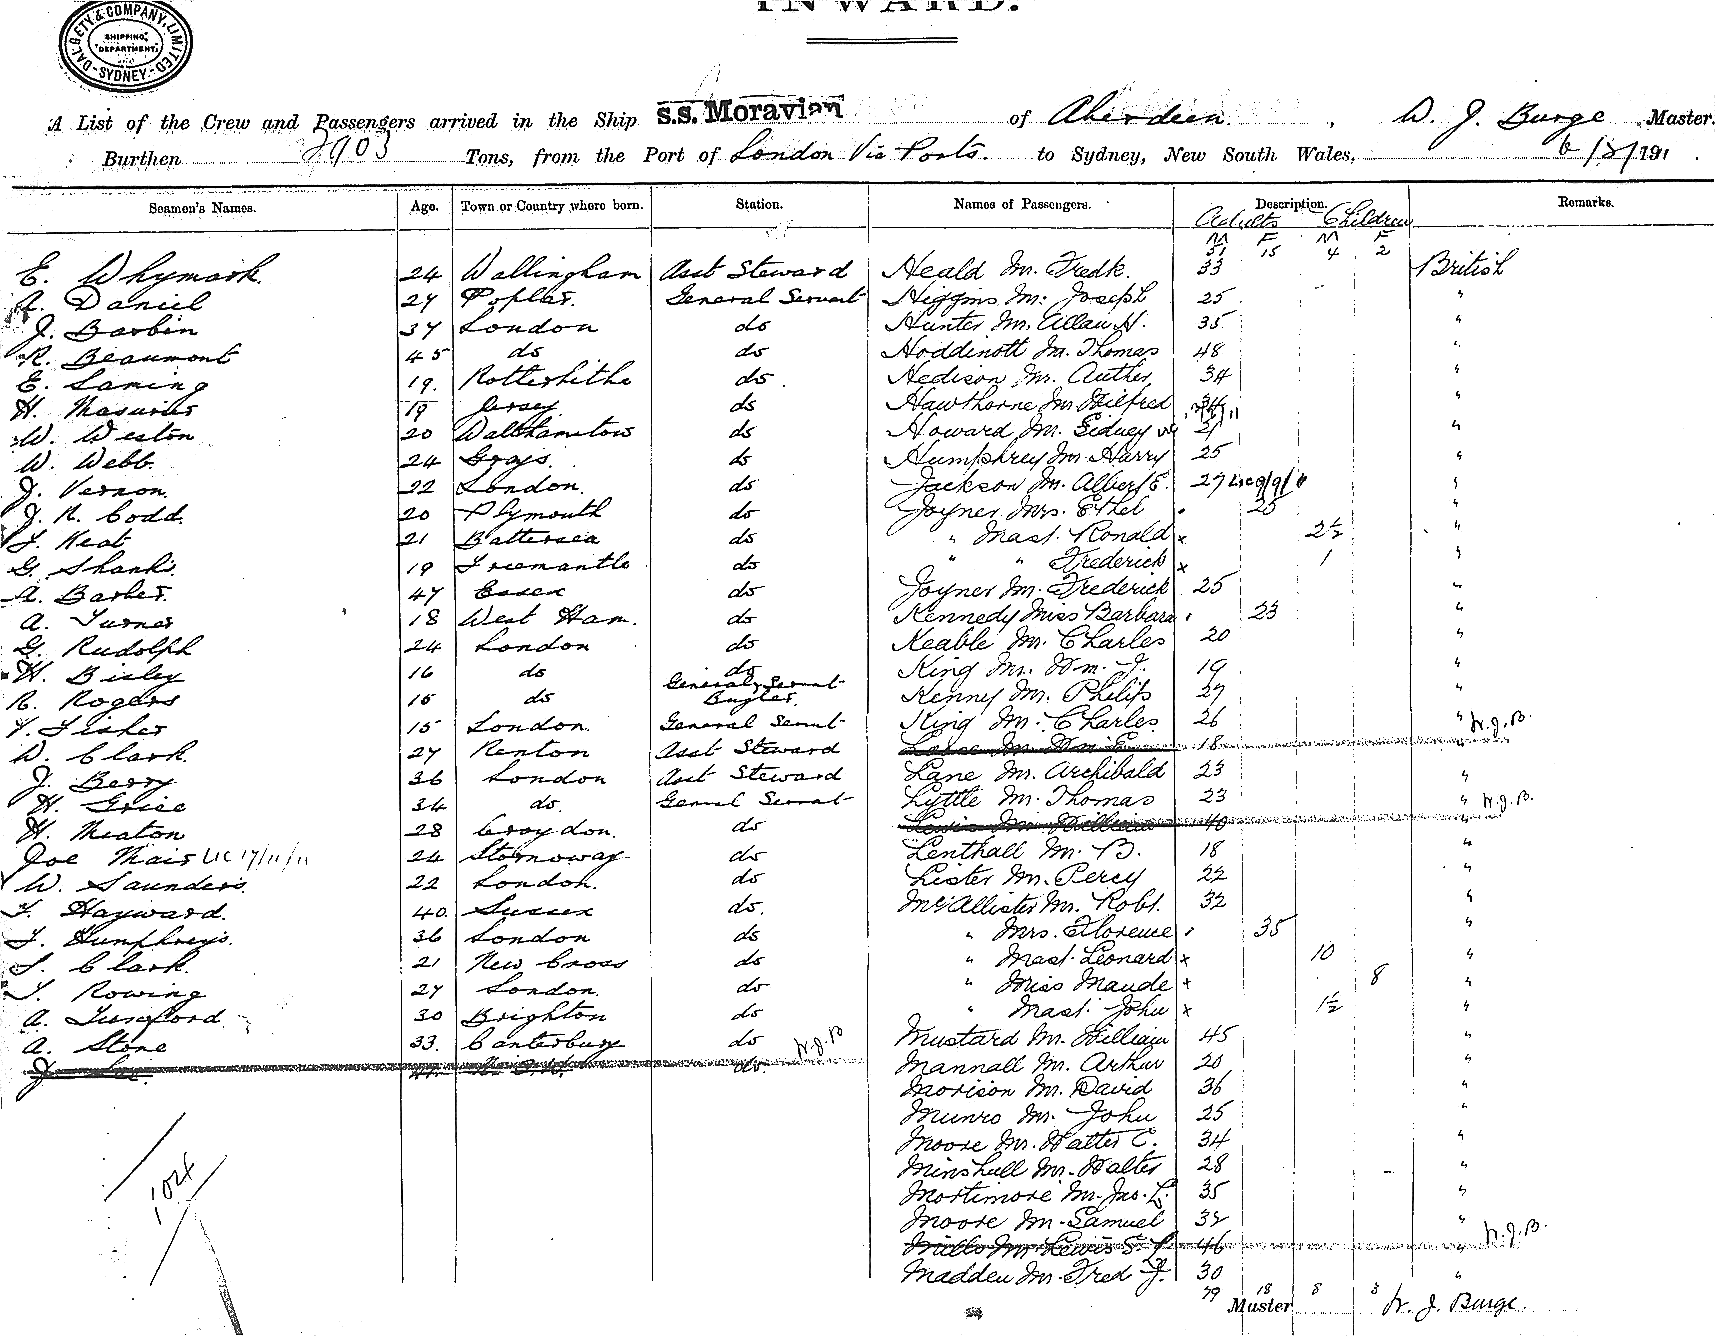 INWARD.
DALGETY & COMPANY, LIMITED
SHIPPING DEPARTMENT
SYDNEY
A List of the Crew and Passengers arrived in the Ship S.S. Moravian of Aberdeen. , W. J. Burge Master.
Burthen 2903 Tons, from the Port of London Via Ports. to Sydney, New South Wales, 191
Seamen's Names. Age. Town or Country where born. Station. Names of Passengers. Description. Remarks.
Adults Children
M F M F
51 15 4 2
E. Whymark. 24 Wallingham Asst Steward Heald Mr. Fredk. 33 British
A. Daniel 27 Poplar. General Servant Higgins Mr. Joseph 25 "
J. Barbin 37 London do Hunter Mr. Allan H. 35 "
R. Beaumont 45 do do Hoddinott Mr. Thomas 48 "
E. Laming 19. Rotherhithe do. Hedison Mr. Auther, 34 "
H. 19 Jersey do Hawthorne Mr. Wilfred "
W. Weston 20 Walthamstow do Howard Mr. Sidney 21 "
W. Webb. 24 Grays. do Humphrey Mr. Harry 25 "
J. Vernon. 22 London. do Jackson Mr. Albert E. 27 "
J. R. Codd. 20 Plymouth do Joyner Mrs. Ethel 25 "
Neat 21 Battersea do " Mast. Ronald x 2½ "
G. Shanks. 19 Fremantle do " " Frederick x 1 "
A. Barber. 47 Essex do Joyner Mr. Frederick 25 "
A. Turner 18 West Ham. do Kennedy Miss Barbara 23 "
G. Rudolph 24 London do Keable Mr. Charles 20 "
H. Bisley 16 do do King Mr. Wm. J. 19 "
R. Rogers 15 do General Servant Bugler. Kenny Mr. Philip 27 "
Fisher 15 London. General Servnt King Mr. Charles 26 " W.J.B.
W. Clark. 27 Renton Asst Steward 18 "
J. Berry 36 London Asst Steward Lane Mr. Archibald 23 "
H. Grice 34 do. General Servnt Lyttle Mr. Thomas 23 " W.J.B.
H. Neaton 28 Croydon. do Lewis Mr. William 40 "
Joe Mair LIC 17/11/11 24 Stornoway do Lenthall Mr. B. 18 "
W. Saunders. 22 London. do Lister Mr. Percy 22 "
Hayward. 40. Sussex do. McAllister Mr. Robt. 32 "
Humphreys. 36 London do " Mrs. Florence 35 "
Clark. 21 New Cross do " Mast. Leonard x 10 "
Rowing 27 London. do " Miss Maude x 8 "
A. Tunsford 30 Brighton do " Mast. John x 1½ "
A. Stone 33. Canterbury do W.J.B Mustard Mr. William 45 "
J. do. Mannall Mr. Arthur 20 "
Morison Mr. David 36 "
Munro Mr. John 25 "
Moore Mr. Walter C. 34 "
Minshull Mr. Walter 28 "
Mortimore Mr. Jas. L. 35 "
Moore Mr. Samuel 32 " W.J.B.
Mills Mr. Lewis S. 46 "
Madden Mr. Fred J. 30 "
104
79 18 8 3
Master W. J. Burge.